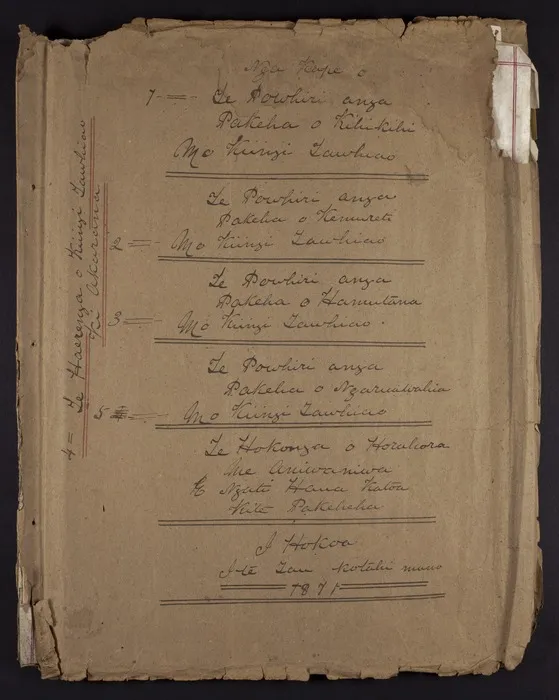 Nga Kape o
7 = Te Powhiri anga
Pakeha o Kihikihi
Mo Kiingi Tawhiao
Te Powhiri anga
Pakeha o Kemureti
Mo Kiingi Tawhiao
Te Powhiri anga
Pakeha o Hamutana
3 = Mo Kiingi Tawhiao.
Te Powhiri anga
Pakeha o Ngaruawahia
5 = Mo Kiingi Tawhiao
Te Hokonga o Horahora
Me Aniwaniwa
E Ngati Haua Katoa
Kite Pakeheha
I Hokoa
I te Tau kotahi mano
1871
4 = Te Haerenga o Kiingi Tawhiao
Ki Akarana